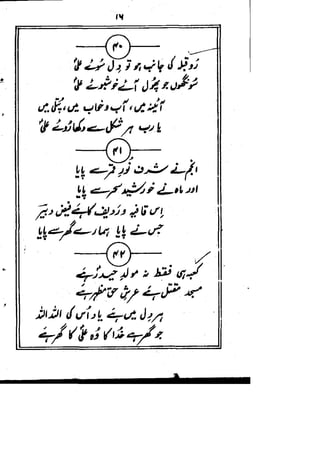 ۱۶
۴۰
رُو قبلہ کی جانب ہو تو دِل سُوئے علیؑ
سُونگھوں جو پھُول آئے خوشبوئے علیؑ
آئینہ میں، آب و خواب میں، پتلی میں
یا رب ہر شکل سے دکھا رُوئے علیؑ
۴۱
انجم نے شرف نُورِ قمر سے پایا
اور ماہ نے خورشیدِ سحر سے پایا
اِس قافیہ و ردیف کا ہے فیض دبیرؔ
جس نے پایا ہمارے گھر سے پایا
۴۲
کعبہ ہی فقط نہ مولدِ حیدرؑ ہے
مسجد مقتل ہے عرشِ حق مظہر ہے
ہر دِل میں ہے یاد اُس کی اللہ اللہ
جو گھر ہے خُدا کا وُہ علیؑ کا گھر ہے